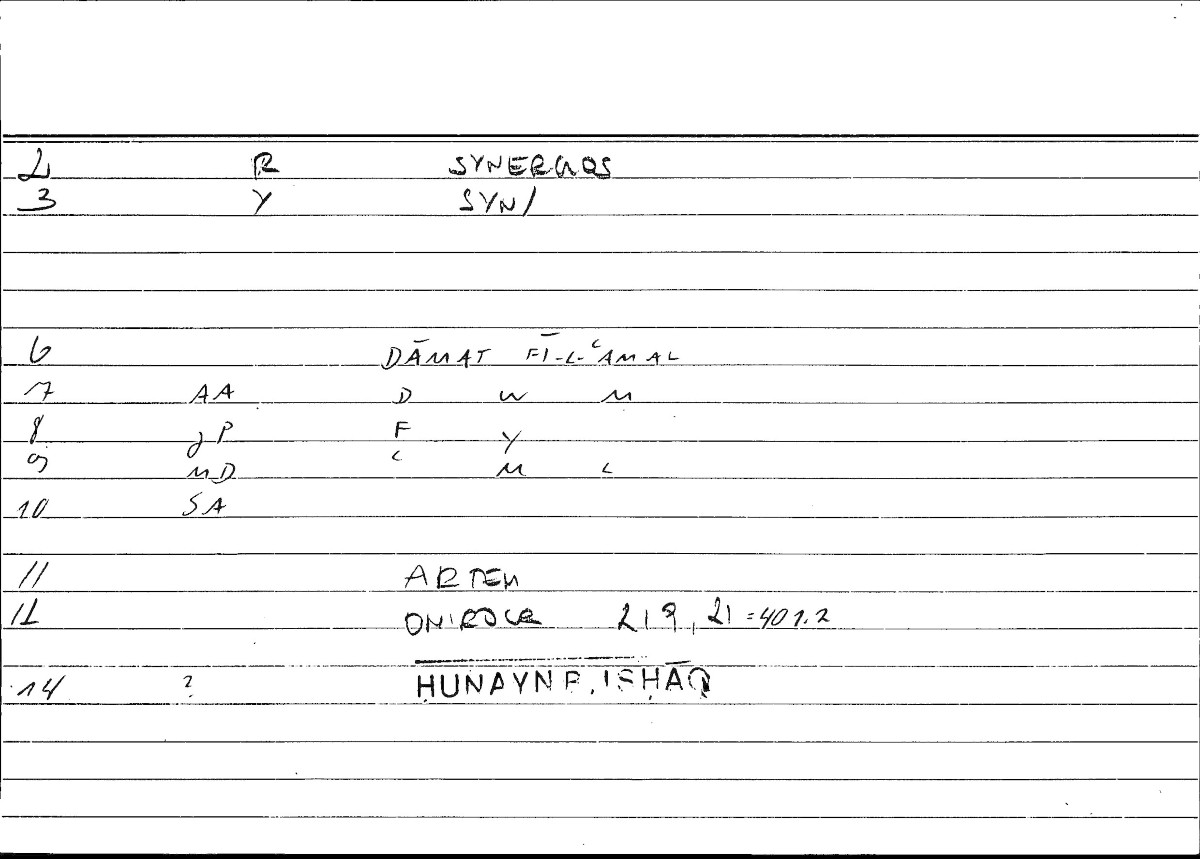 2 R SYNERGOS
3 Y SYN/
6 DĀMAT FĪ-L-ʿAMAL
7 AA D W M
8 gP F Y
9 MD ʿ M L
10 SA
11 ARTEM
12 ONIROCR 219,21 =401.2
14 ? ḤUNAYN B. ISḤĀQ